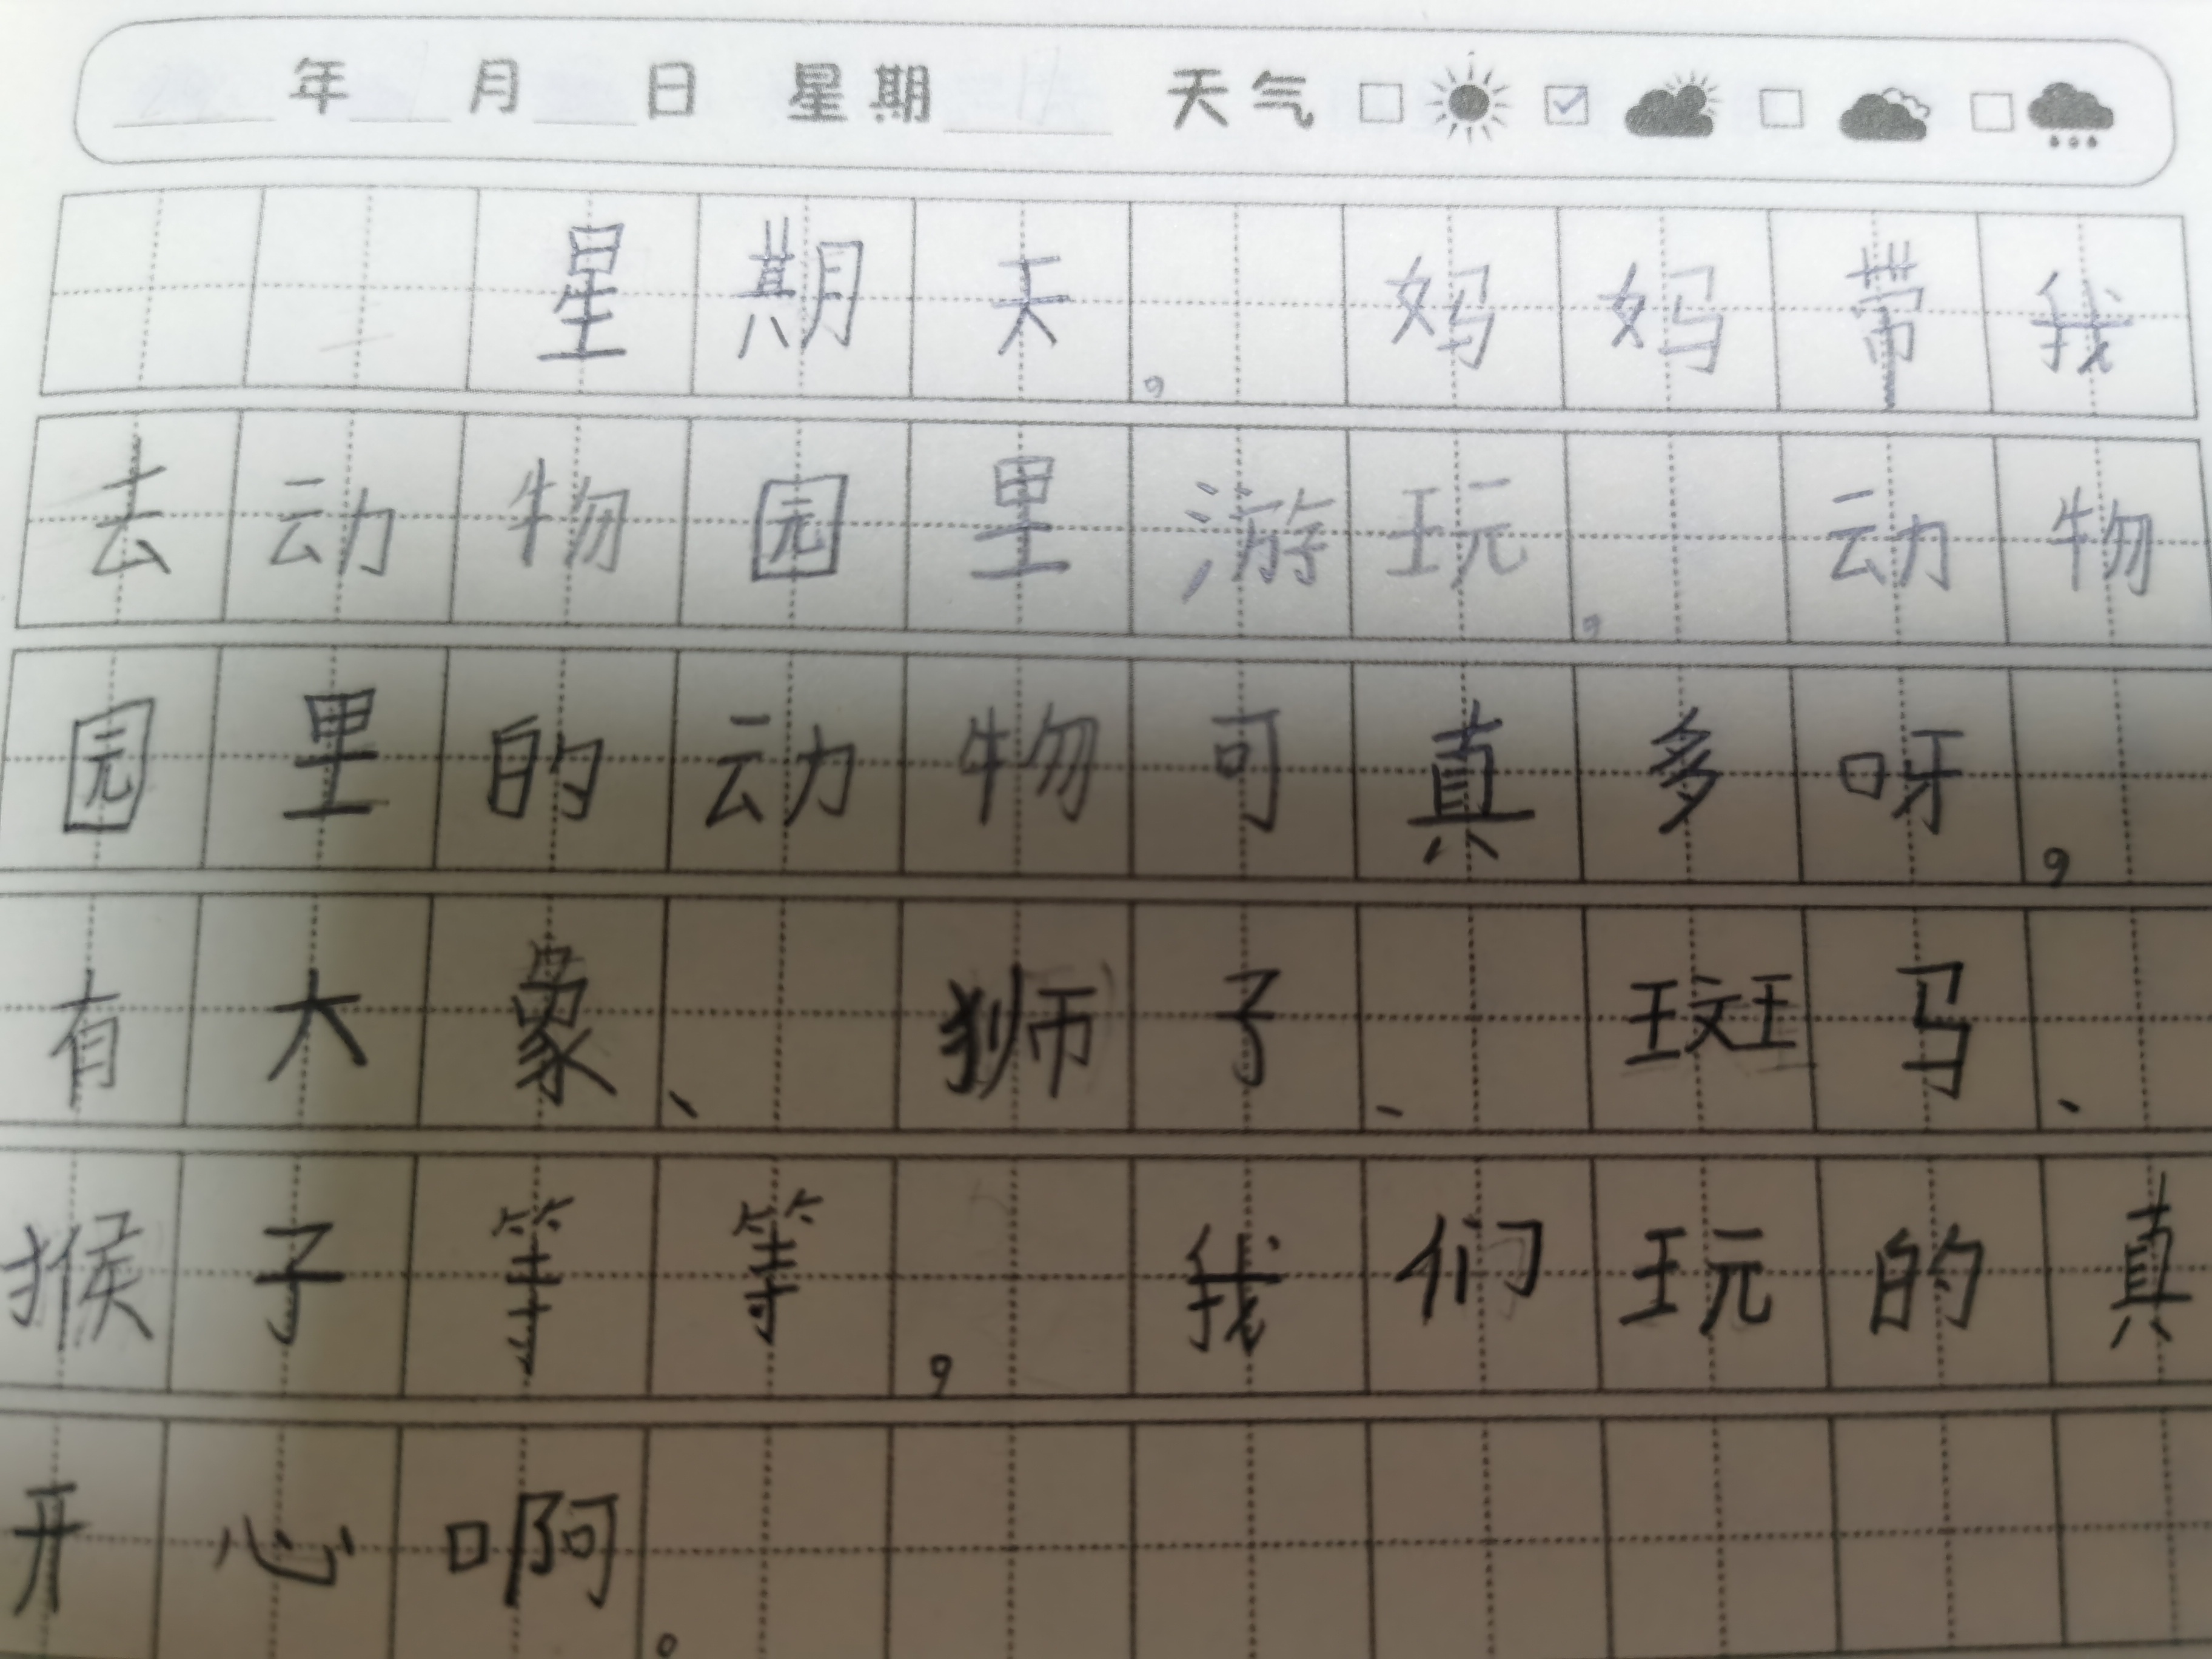 年 月 日 星期 天气
星期天，妈妈带我
去动物园里游玩，动物
园里的动物可真多呀，
有大象、狮子、斑马、
猴子等等，我们玩的真
开心啊。